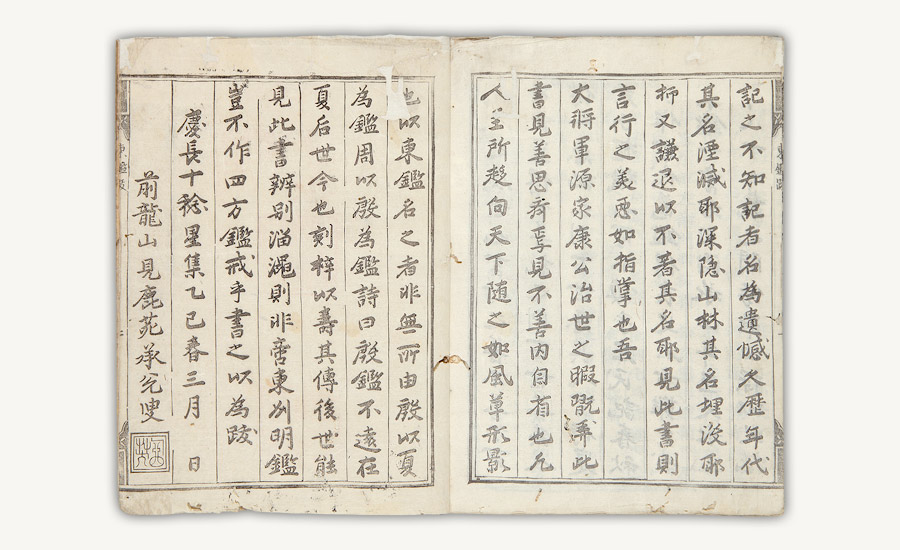 記之不知記者名為遺憾久歴年代
其名湮滅耶深隠山林其名埋没耶
抑又謙退以不著其名耶見此書則
言行之美悪如指掌也吾
大将軍源家康公治世之暇翫弄此
書見善思斉焉見不善内自省也凡
人主所趍向天下随之如風草形影
也以東鑑名之者非無所由殷以夏
為鑑周以殷為鑑詩曰殷鑑不遠在
夏后世今也刻梓以壽其傳後世能
見此書辨別淄澠則非啻東州明鑑
豈不作四方鑑戒乎書之以為跋
慶長十稔星集乙巳春三月 日
前龍山見鹿苑承兌叟